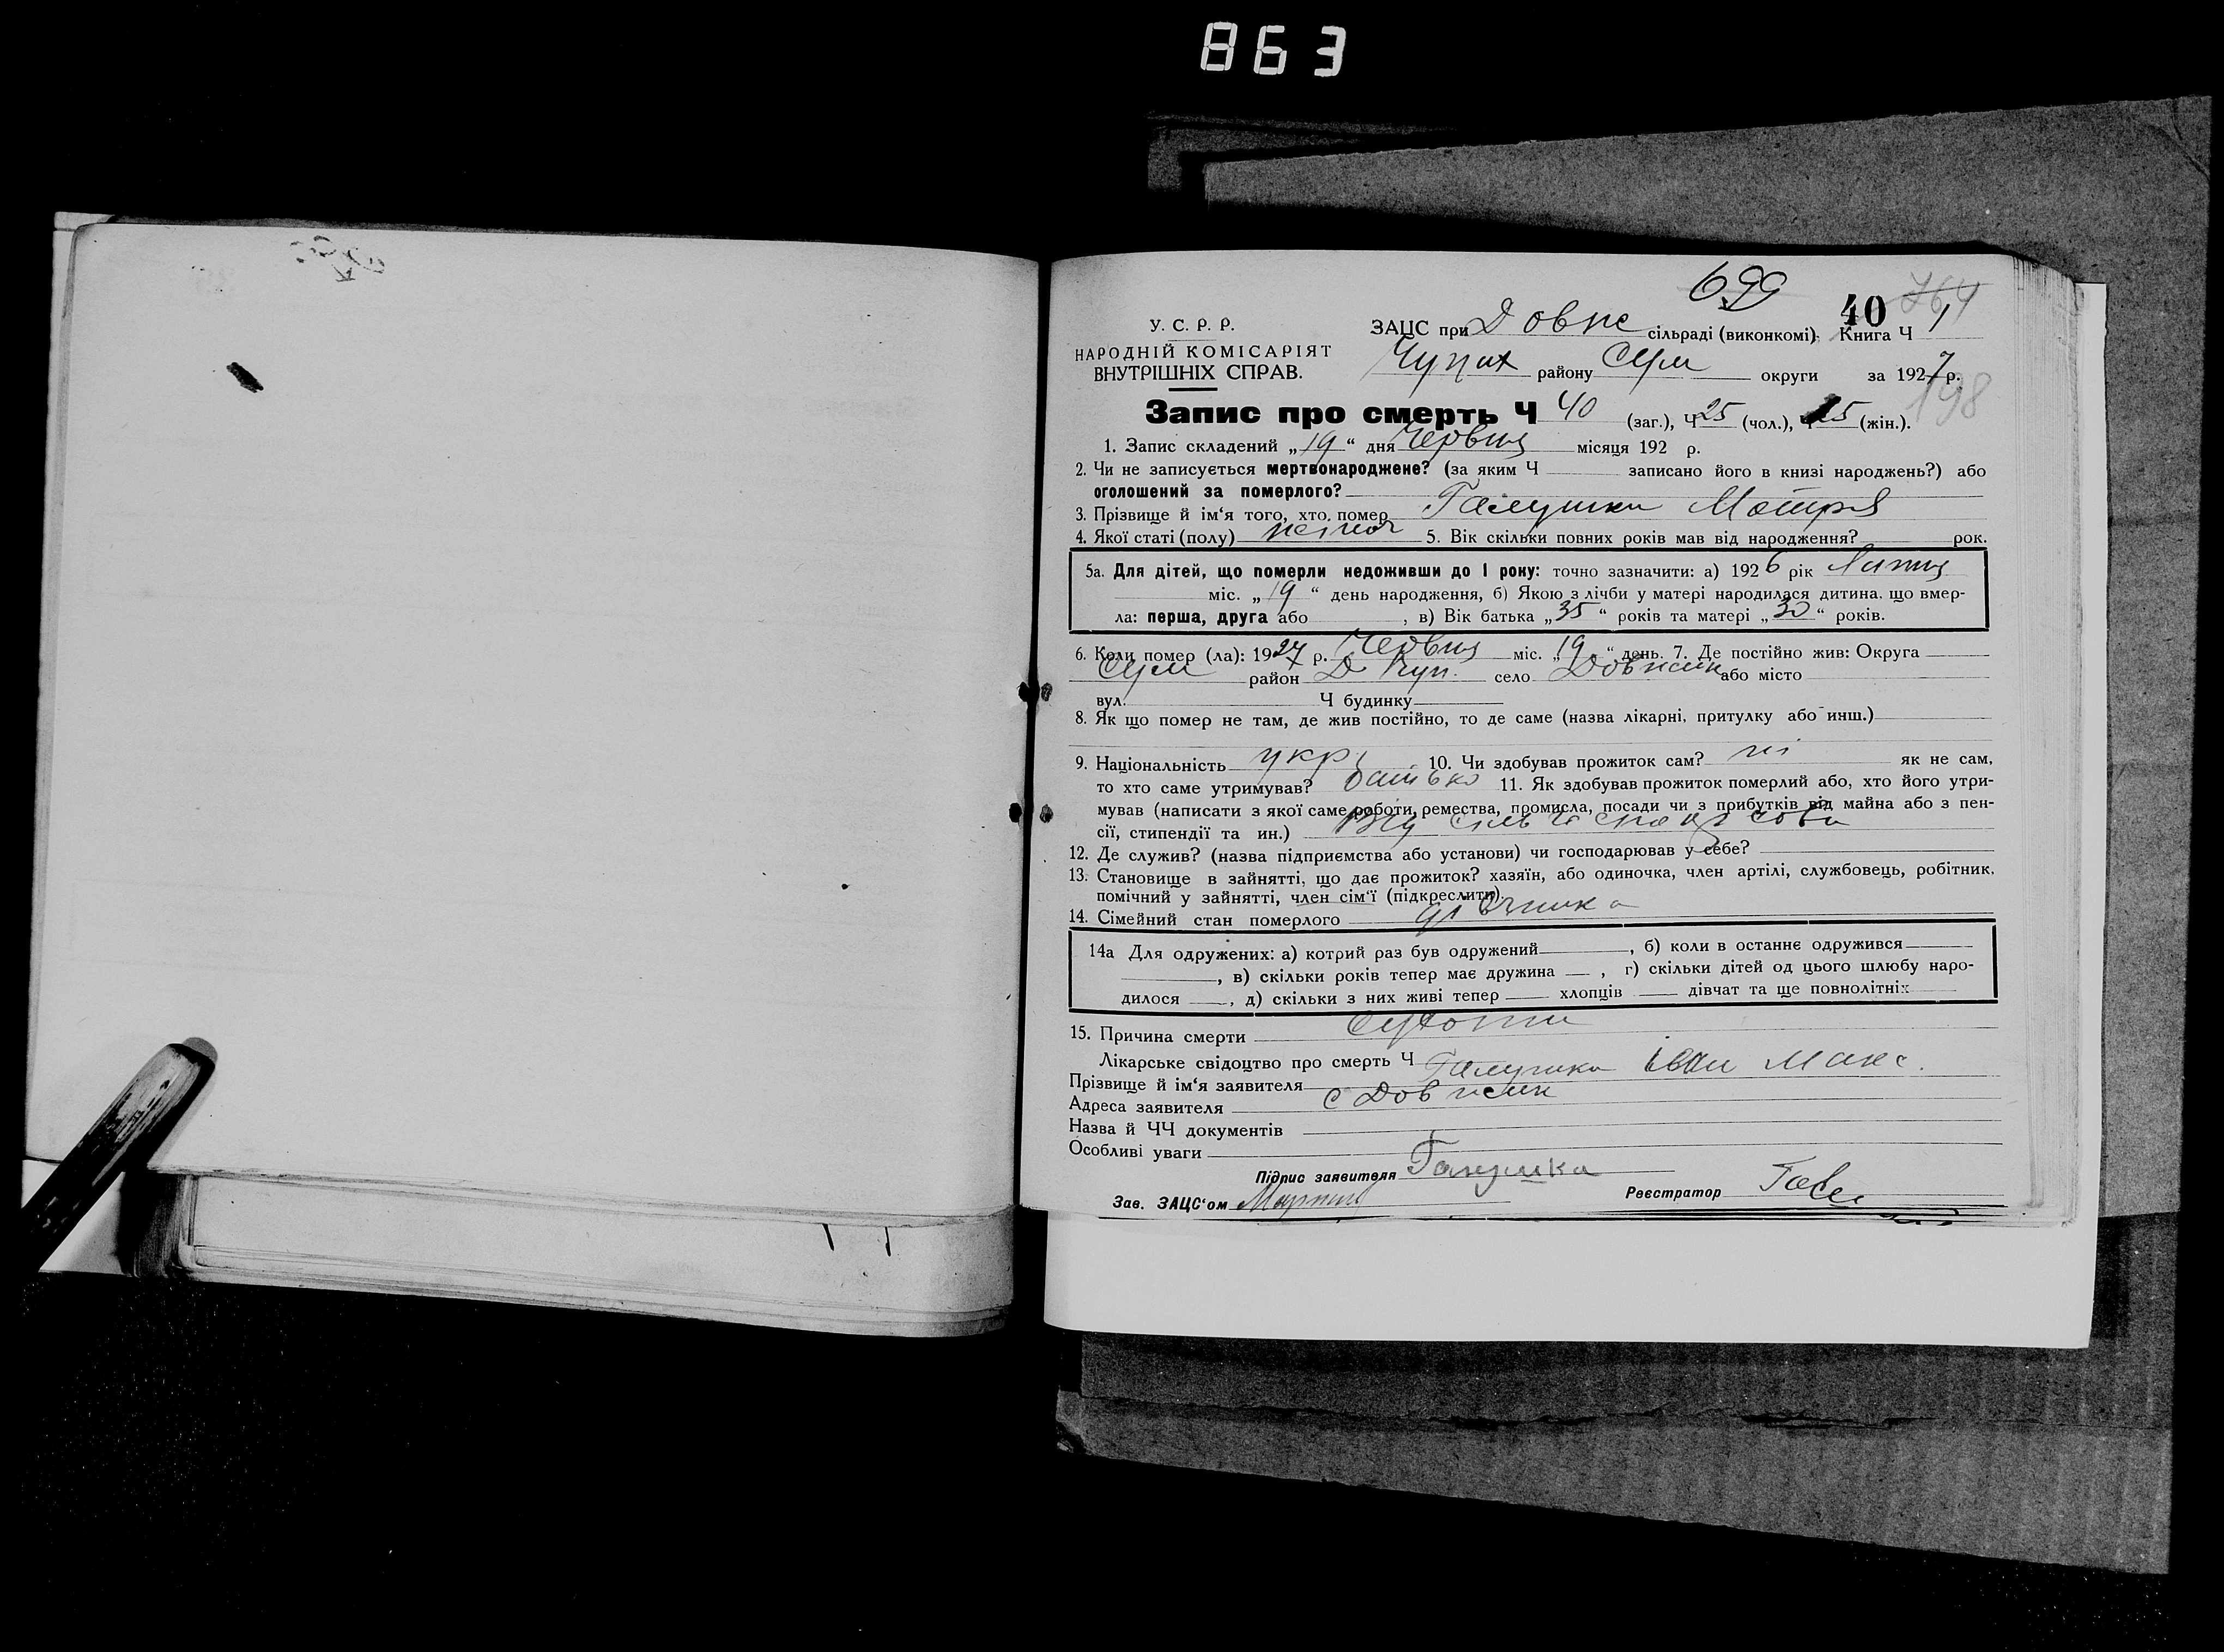 863
699
40 764
У. С. Р. Р. ЗАЦС при Довже сільраді (виконкомі). Книга Ч 1
НАРОДНІЙ КОМІСАРІЯТ
ВНУТРІШНІХ СПРАВ. Чупах району Сум округи за 1927 р.
198
Запис про смерть Ч 40 (заг.), Ч 25 (чол.), Ч 15 (жін.).
1. Запис складений „19“ дня Червня місяця 192 р.
2. Чи не записується мертвонароджене? (за яким Ч записано його в книзі народжень?) або
оголошений за померлого?
3. Прізвище й ім‘я того, хто помер Галушка Мотря
4. Якої статі (полу) жіноч 5. Вік скільки повних років мав від народження? рок.
5а. Для дітей, що померли недоживши до 1 року: точно зазначити: а) 1926 рік Липня
міс. „19“ день народження, б) Якою з лічби у матері народилася дитина, що вмер-
ла: перша, друга або , в) Вік батька „35“ років та матері „30“ років.
6. Коли помер (ла): 1927 р. Червня міс. „19“ день. 7. Де постійно жив: Округа
Сум район Д Чуп. село Довжик або місто
вул. Ч будинку
8. Як що помер не там, де жив постійно, то де саме (назва лікарні, притулку або инш.)
9. Національність укр. 10. Чи здобував прожиток сам? ні як не сам,
то хто саме утримував? батько 11. Як здобував прожиток померлий або, хто його утри-
мував (написати з якої саме роботи, ремества, промисла, посади чи з прибутків від майна або з пен-
сії, стипендії та ин.)
12. Де служив? (назва підприємства або установи) чи господарював у себе?
13. Становище в зайнятті, що дає прожиток? хазяїн, або одиночка, член артілі, службовець, робітник,
помічний у зайнятті, член сім‘ї (підкреслити)
14. Сімейний стан померлого дівчинка
14а Для одружених: а) котрий раз був одружений , б) коли в останнє одружився
, в) скільки років тепер має дружина , г) скільки дітей од цього шлюбу наро-
дилося , д) скільки з них живі тепер хлопців дівчат та ще повнолітніх
15. Причина смерти Сухоти
Лікарське свідоцтво про смерть Ч
Прізвище й ім‘я заявителя Галушка Іван Макс.
Адреса заявителя с Довжик
Назва й ЧЧ документів
Особливі уваги
Підпис заявителя Галушка
Зав. ЗАЦС‘ом Реєстратор